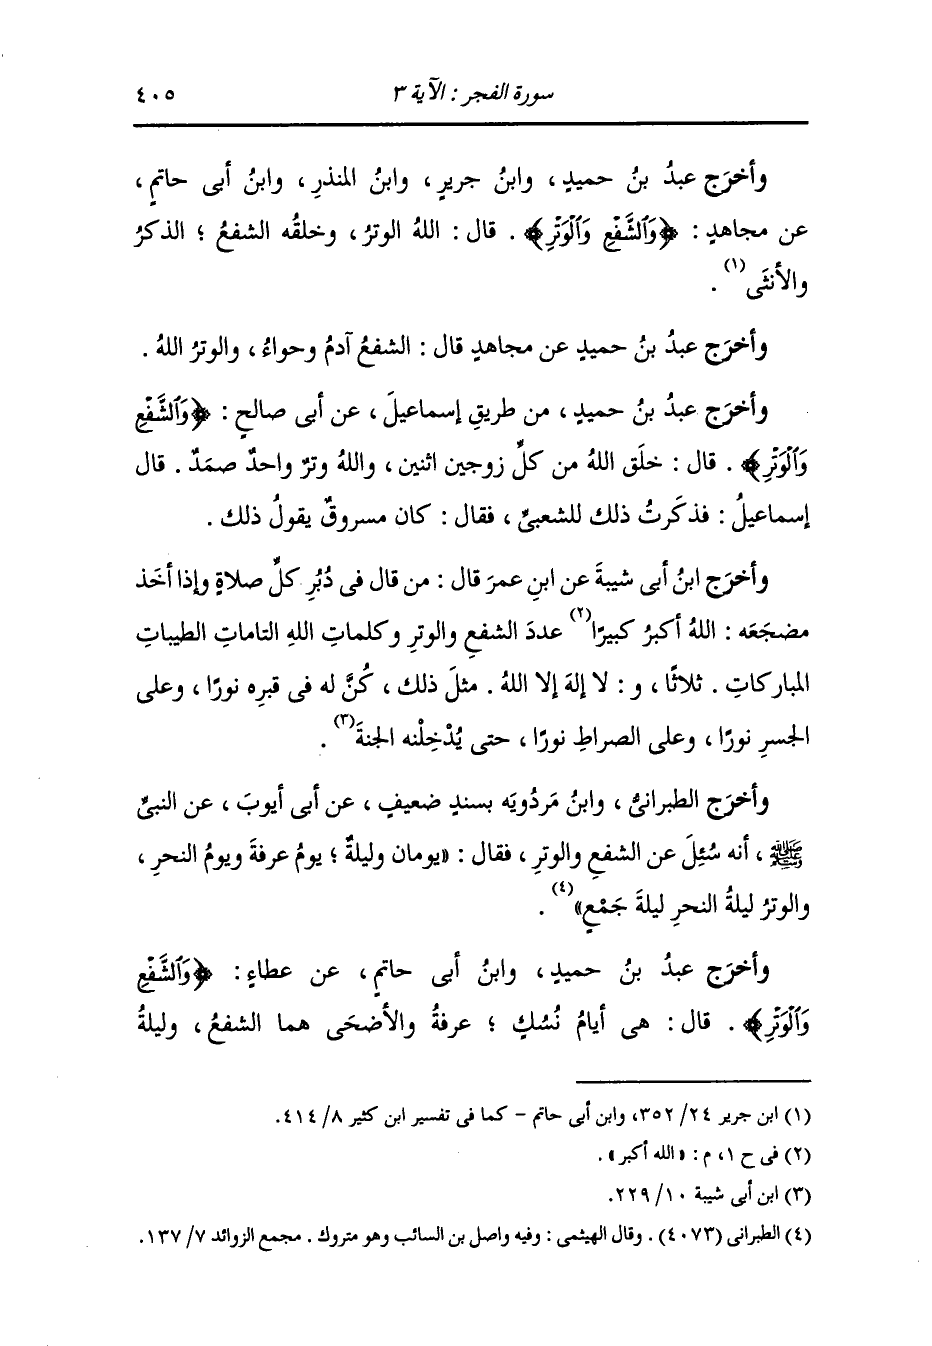 سورة الفجر : الآية ٣ ٤٠٥
وأخرَج عبدُ بنُ حميدٍ ، وابنُ جريرٍ ، وابنُ المنذرِ ، وابنُ أبى حاتمٍ ،
عن مجاهدٍ : ﴿وَٱلشَّفْعِ وَٱلْوَتْرِ﴾ . قال : اللهُ الوترُ ، وخلقُه الشفعُ ؛ الذكرُ
والأنثَى(١) .
وأخرَج عبدُ بنُ حميدٍ عن مجاهدٍ قال : الشفعُ آدمُ وحواءُ ، والوترُ اللهُ .
وأخرَج عبدُ بنُ حميدٍ ، من طريقِ إسماعيلَ ، عن أبى صالحٍ : ﴿وَٱلشَّفْعِ
وَٱلْوَتْرِ﴾ . قال : خلَق اللهُ من كلِّ زوجين اثنين ، واللهُ وترٌ واحدٌ صمَدٌ . قال
إسماعيلُ : فذكَرتُ ذلك للشعبىِّ ، فقال : كان مسروقٌ يقولُ ذلك .
وأخرَج ابنُ أبى شيبةَ عن ابنِ عمرَ قال : من قال فى دُبُرِ كلِّ صلاةٍ وإذا أخَذ
مضجَعَه : اللهُ أكبرُ كبيرًا(٢) عددَ الشفعِ والوترِ وكلماتِ اللهِ التاماتِ الطيباتِ
المباركاتِ . ثلاثًا ، و : لا إلهَ إلا اللهُ . مثلَ ذلك ، كُنَّ له فى قبرِه نورًا ، وعلى
الجسرِ نورًا ، وعلى الصراطِ نورًا ، حتى يُدْخِلْنه الجنةَ(٣) .
وأخرَج الطبرانىُّ ، وابنُ مَردُويَه بسندٍ ضعيفٍ ، عن أبى أيوبَ ، عن النبىِّ
ﷺ ، أنه سُئِلَ عن الشفعِ والوترِ ، فقال : «يومان وليلةٌ ؛ يومُ عرفةَ ويومُ النحرِ ،
والوترُ ليلةُ النحرِ ليلةَ جَمْعٍ»(٤) .
وأخرَج عبدُ بنُ حميدٍ ، وابنُ أبى حاتمٍ ، عن عطاءٍ : ﴿وَٱلشَّفْعِ
وَٱلْوَتْرِ﴾ . قال : هى أيامُ نُسُكٍ ؛ عرفةُ والأضحَى هما الشفعُ ، وليلةُ
(١) ابن جرير ٢٤/ ٣٥٢، وابن أبى حاتم - كما فى تفسير ابن كثير ٨/ ٤١٤.
(٢) فى ح ١، م : « الله أكبر» .
(٣) ابن أبى شيبة ١٠/ ٢٢٩.
(٤) الطبرانى (٤٠٧٣) . وقال الهيثمى : وفيه واصل بن السائب وهو متروك . مجمع الزوائد ٧/ ١٣٧.